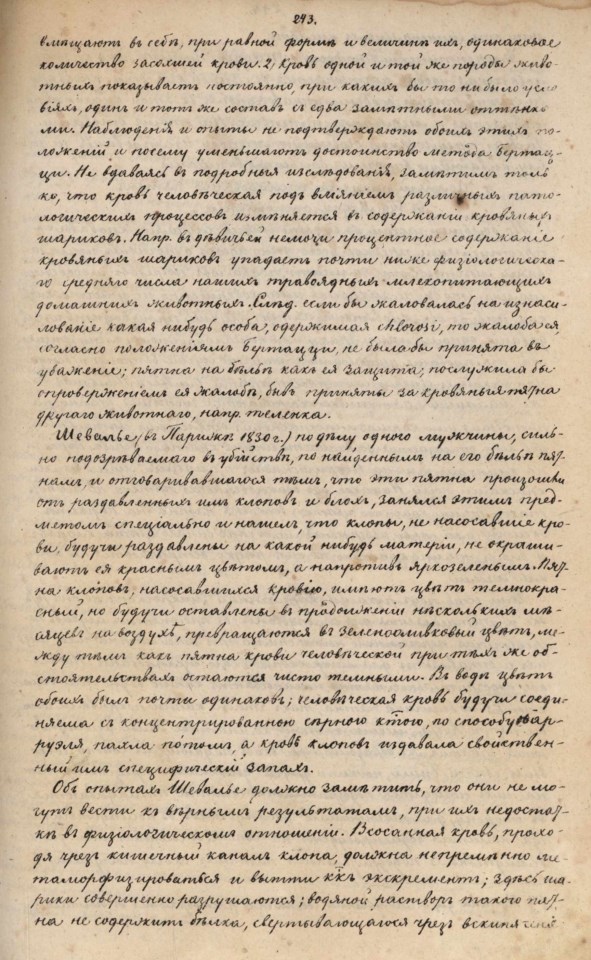 243.
вмѣщаютъ въ себѣ, при равной формѣ и величинѣ ихъ, одинаковое
количество засохшей крови. 2) Кровь одной и той же породы живо-
тныхъ показываетъ постоянно, при какихъ бы то ни было усло
віяхъ, одинъ и тотъ же составъ съ едва замѣтными оттѣнка
ми. Наблюденія и опыты не подтверждаютъ обоихъ этихъ по-
ложеній и посему уменьшаютъ достоинство метода Бертац-
ци. Не вдаваясь въ подробныя изслѣдованія, замѣтимъ толь
ко, что кровь человѣческая подъ вліяніемъ различныхъ пато-
логическихъ процессовъ измѣняется въ содержаніи кровяныхъ
шариковъ. Напр. въ дѣвичьей немочи процентное содержаніе
кровяныхъ шариковъ упадаетъ почти ниже физіологическа-
го средняго числа нашихъ травоядныхъ млекопитающихъ
домашнихъ животныхъ. Слѣд. если бы жаловалась на изнаси-
лованіе какая нибудь особа, одержимая chlorosi, то жалоба ея,
согласно положеніямъ Бертацци, не была бы принята въ
уваженіе; пятна на бѣльѣ какъ ея защита, послужила бы
опроверженіемъ ея жалобѣ, бывъ приняты за кровяныя пятна
другаго животнаго, напр. теленка.
Шевалье (въ Парижѣ 1830 г.) по дѣлу одного мужчины, силь-
но подозрѣваемаго въ убійствѣ, по найденнымъ на его бѣльѣ пят
намъ, и отговаривавшагося тѣмъ, что эти пятна произошли
отъ раздавленныхъ имъ клоповъ и блохъ, занялся этимъ пред-
метомъ спеціально и нашелъ, что клопы, не насосавшіе кро-
ви, будучи раздавлены на какой нибудь матеріи, не окраши-
ваютъ ея краснымъ цвѣтомъ, а напротивъ яркозеленымъ. Пят
на клоповъ, насосавшихся кровію, имѣютъ цвѣтъ темнокра-
сный, но будучи оставлены въ продолженіи нѣсколькихъ мѣ-
сяцевъ на воздухѣ, превращаются въ зеленооливковый цвѣтъ, ме-
жду тѣмъ какъ пятна крови человѣческой при тѣхъ же об-
стоятельствахъ остаются чисто темными. Въ водѣ цвѣтъ
обоихъ былъ почти одинаковъ; человѣческая кровь будучи соеди-
няема съ концентрированною сѣрною к̃тою, по способу Бар-
руэля, пахла потомъ, а кровь клоповъ издавала свойствен-
ный имъ специфическій запахъ.
Объ опытахъ Шевалье должно замѣтить, что они не мо-
гутъ вести къ вѣрнымъ результатамъ, при ихъ недостат-
кѣ въ физіологическомъ отношеніи. Всосанная кровь, прохо-
дя чрезъ кишечный каналъ клопа, должна непремѣнно ме-
таморфизироваться и выйти к̃къ экскрементъ; здѣсь ша-
рики совершенно разрушаются; водяной растворъ такого пят-
на не содержитъ бѣлка, свертывающагося чрезъ вскипяченіе